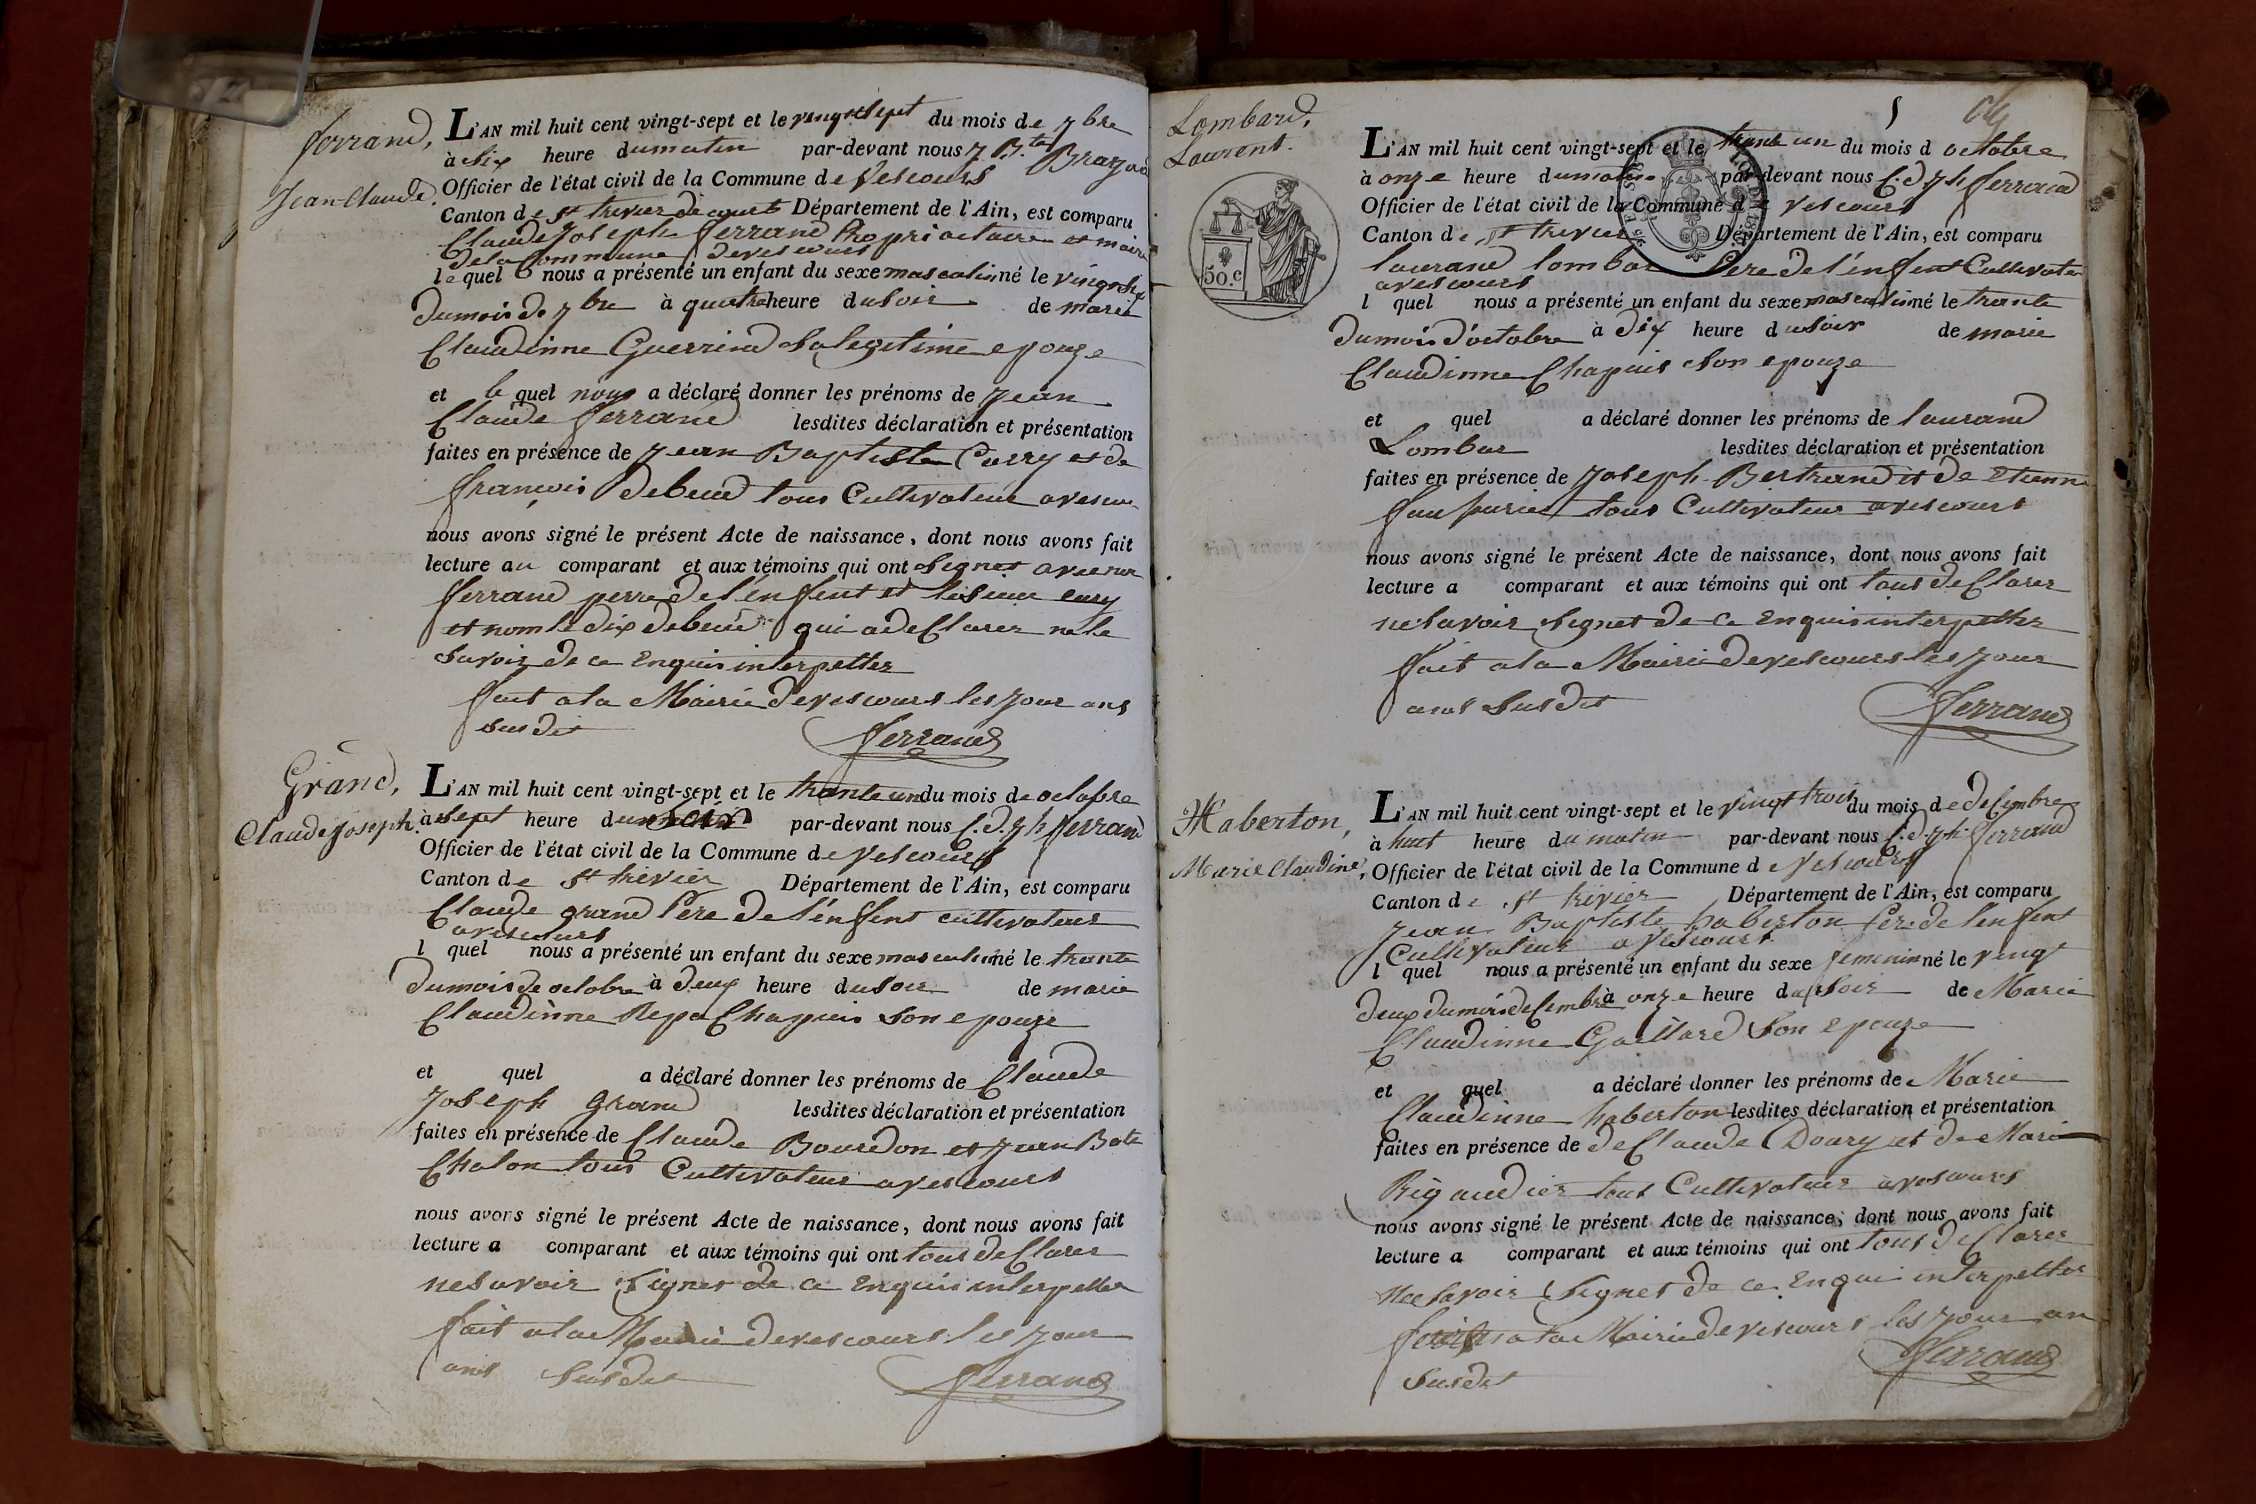 ferrand,
Jean-Claude.
L'AN mil huit cent vingt-sept et le vingt sept du mois de 7bre
à Six heure du matin par-devant nous J. B.te
Officier de l'état civil de la Commune de Vescours
Canton de St trivier de court Département de l'Ain, est comparu
Claude Joseph ferrand Propriactaire et maire
de la Commune de vescours
le quel nous a présenté un enfant du sexe masculin né le
du mois de 7bre à quatre heure du Soir de marie
Claudinne Guerrind Sa legitime epouze
et le quel nous a déclaré donner les prénoms de Jean
Claude ferrand lesdites déclaration et présentation
faites en présence de Jean Baptiste Curry et de
françois Debeud tous Cultivateur a
nous avons signé le présent Acte de naissance, dont nous avons fait
lecture au comparant et aux témoins qui ont Signet avec nous
ferrand perre de l'enfent et lesieur cury
et non le dix debeud qui a deClarer ne le
Savoir de ce Enquis interpetter
fait a la Mairie de vescours les Jour ans
Sus dit
ferrand
Grand,
Claude Joseph.
L'AN mil huit cent vingt-sept et le trante un du mois de octobre
à Sept heure du Soir par-devant nous C. d. Jh ferrand
Officier de l'état civil de la Commune de Vescours
Canton de St trivier Département de l'Ain, est comparu
Claude grand Pere de l'enfent cultivateur
a vescours
l quel nous a présenté un enfant du sexe masculin né le trante
du mois de octobre à deux heure du Soir de marie
Claudinne Repa Chapuis Son epouze
et quel a déclaré donner les prénoms de Claude
Joseph grand lesdites déclaration et présentation
faites en présence de Claude Bourdon et Jean Bate
Chalon tous Cultivateur a vescours
nous avons signé le présent Acte de naissance, dont nous avons fait
lecture a comparant et aux témoins qui ont tous deClarer
ne Savoir Signer de ce Enquis interpetter
fait a la Mairie de vescours les Jour
ans Sus dit
ferrand
Lombard,
Laurent.
50.c
L'AN mil huit cent vingt-sept et le trante un du mois d octobre
à onze heure du matin par-devant nous C. d. Jh ferrand
Officier de l'état civil de la Commune de vescours
Canton de St trivier Département de l'Ain, est comparu
laurand lombar Pere de l'enfent Cultivateur
a vescours
l quel nous a présenté un enfant du sexe masculin né le trante
du mois d'octobre à dix heure du Soir de marie
Claudinne Chapuis Son epouze
et quel a déclaré donner les prénoms de laurand
Lombar lesdites déclaration et présentation
faites en présence de Joseph Bertrand et de Etienne
tous Cultivateur a vescours
nous avons signé le présent Acte de naissance, dont nous avons fait
lecture a comparant et aux témoins qui ont tous deClarer
ne Savoir Signet de ce Enquis interpetter
fait a la Mairie de vescours les Jour
ans Sus dit
ferrand
Haberton,
Marie Claudine,
L'AN mil huit cent vingt-sept et le vingt trois du mois de deCembre
à huit heure du matin par-devant nous C. d. Jh ferrand
Officier de l'état civil de la Commune de vescours
Canton de St trivier Département de l'Ain, est comparu
Jean Baptiste haberton Pere de l'enfent
Cultivateur a Vescours
l quel nous a présenté un enfant du sexe feminin né le vingt
deux du mois deCembre à onze heure du Soir de Marie
Claudinne Gaillard Son epouze
et quel a déclaré donner les prénoms de Marie
Claudinne haberton lesdites déclaration et présentation
faites en présence de de Claude Doary et de Marie
Rigaudier tous Cultivateur a vescours
nous avons signé le présent Acte de naissance, dont nous avons fait
lecture a comparant et aux témoins qui ont tous deClarer
ne Savoir Signet de ce Enqui interpetter
fait a la Mairie de vescours les Jour an
Susdit
ferrand